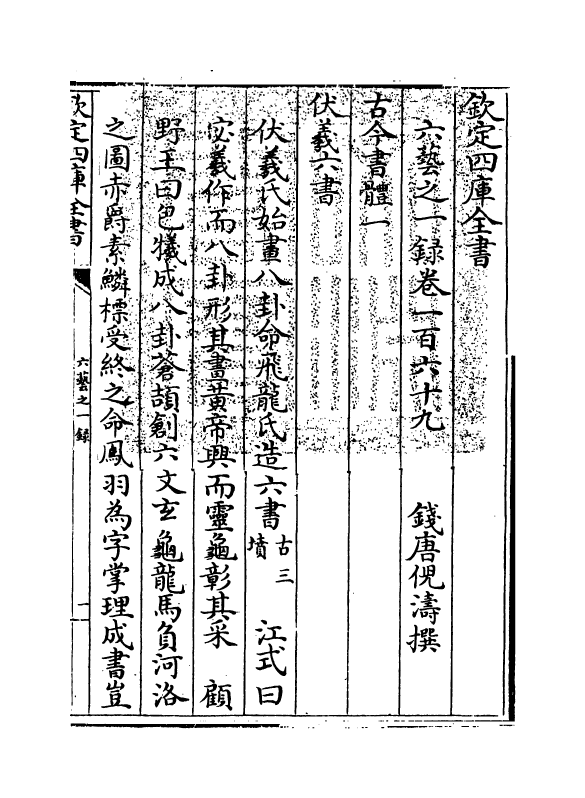 欽定四庫全書
六藝之一錄卷一百六十九
錢唐倪濤撰
古今書體一
伏羲六書
伏羲氏始畫八卦命飛龍氏造六書古三墳 江式曰
宓羲作而八卦形其畫黃帝興而靈龜彰其采 顧
野王曰庖犧成八卦蒼頡創六文玄龜龍馬負河洛
之圖赤爵素鱗標受終之命鳳羽為字掌理成書豈
欽定四庫全書
六藝之一錄
一